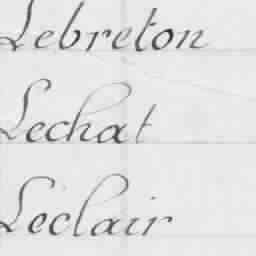 Lebreton
Lechat
Leclair